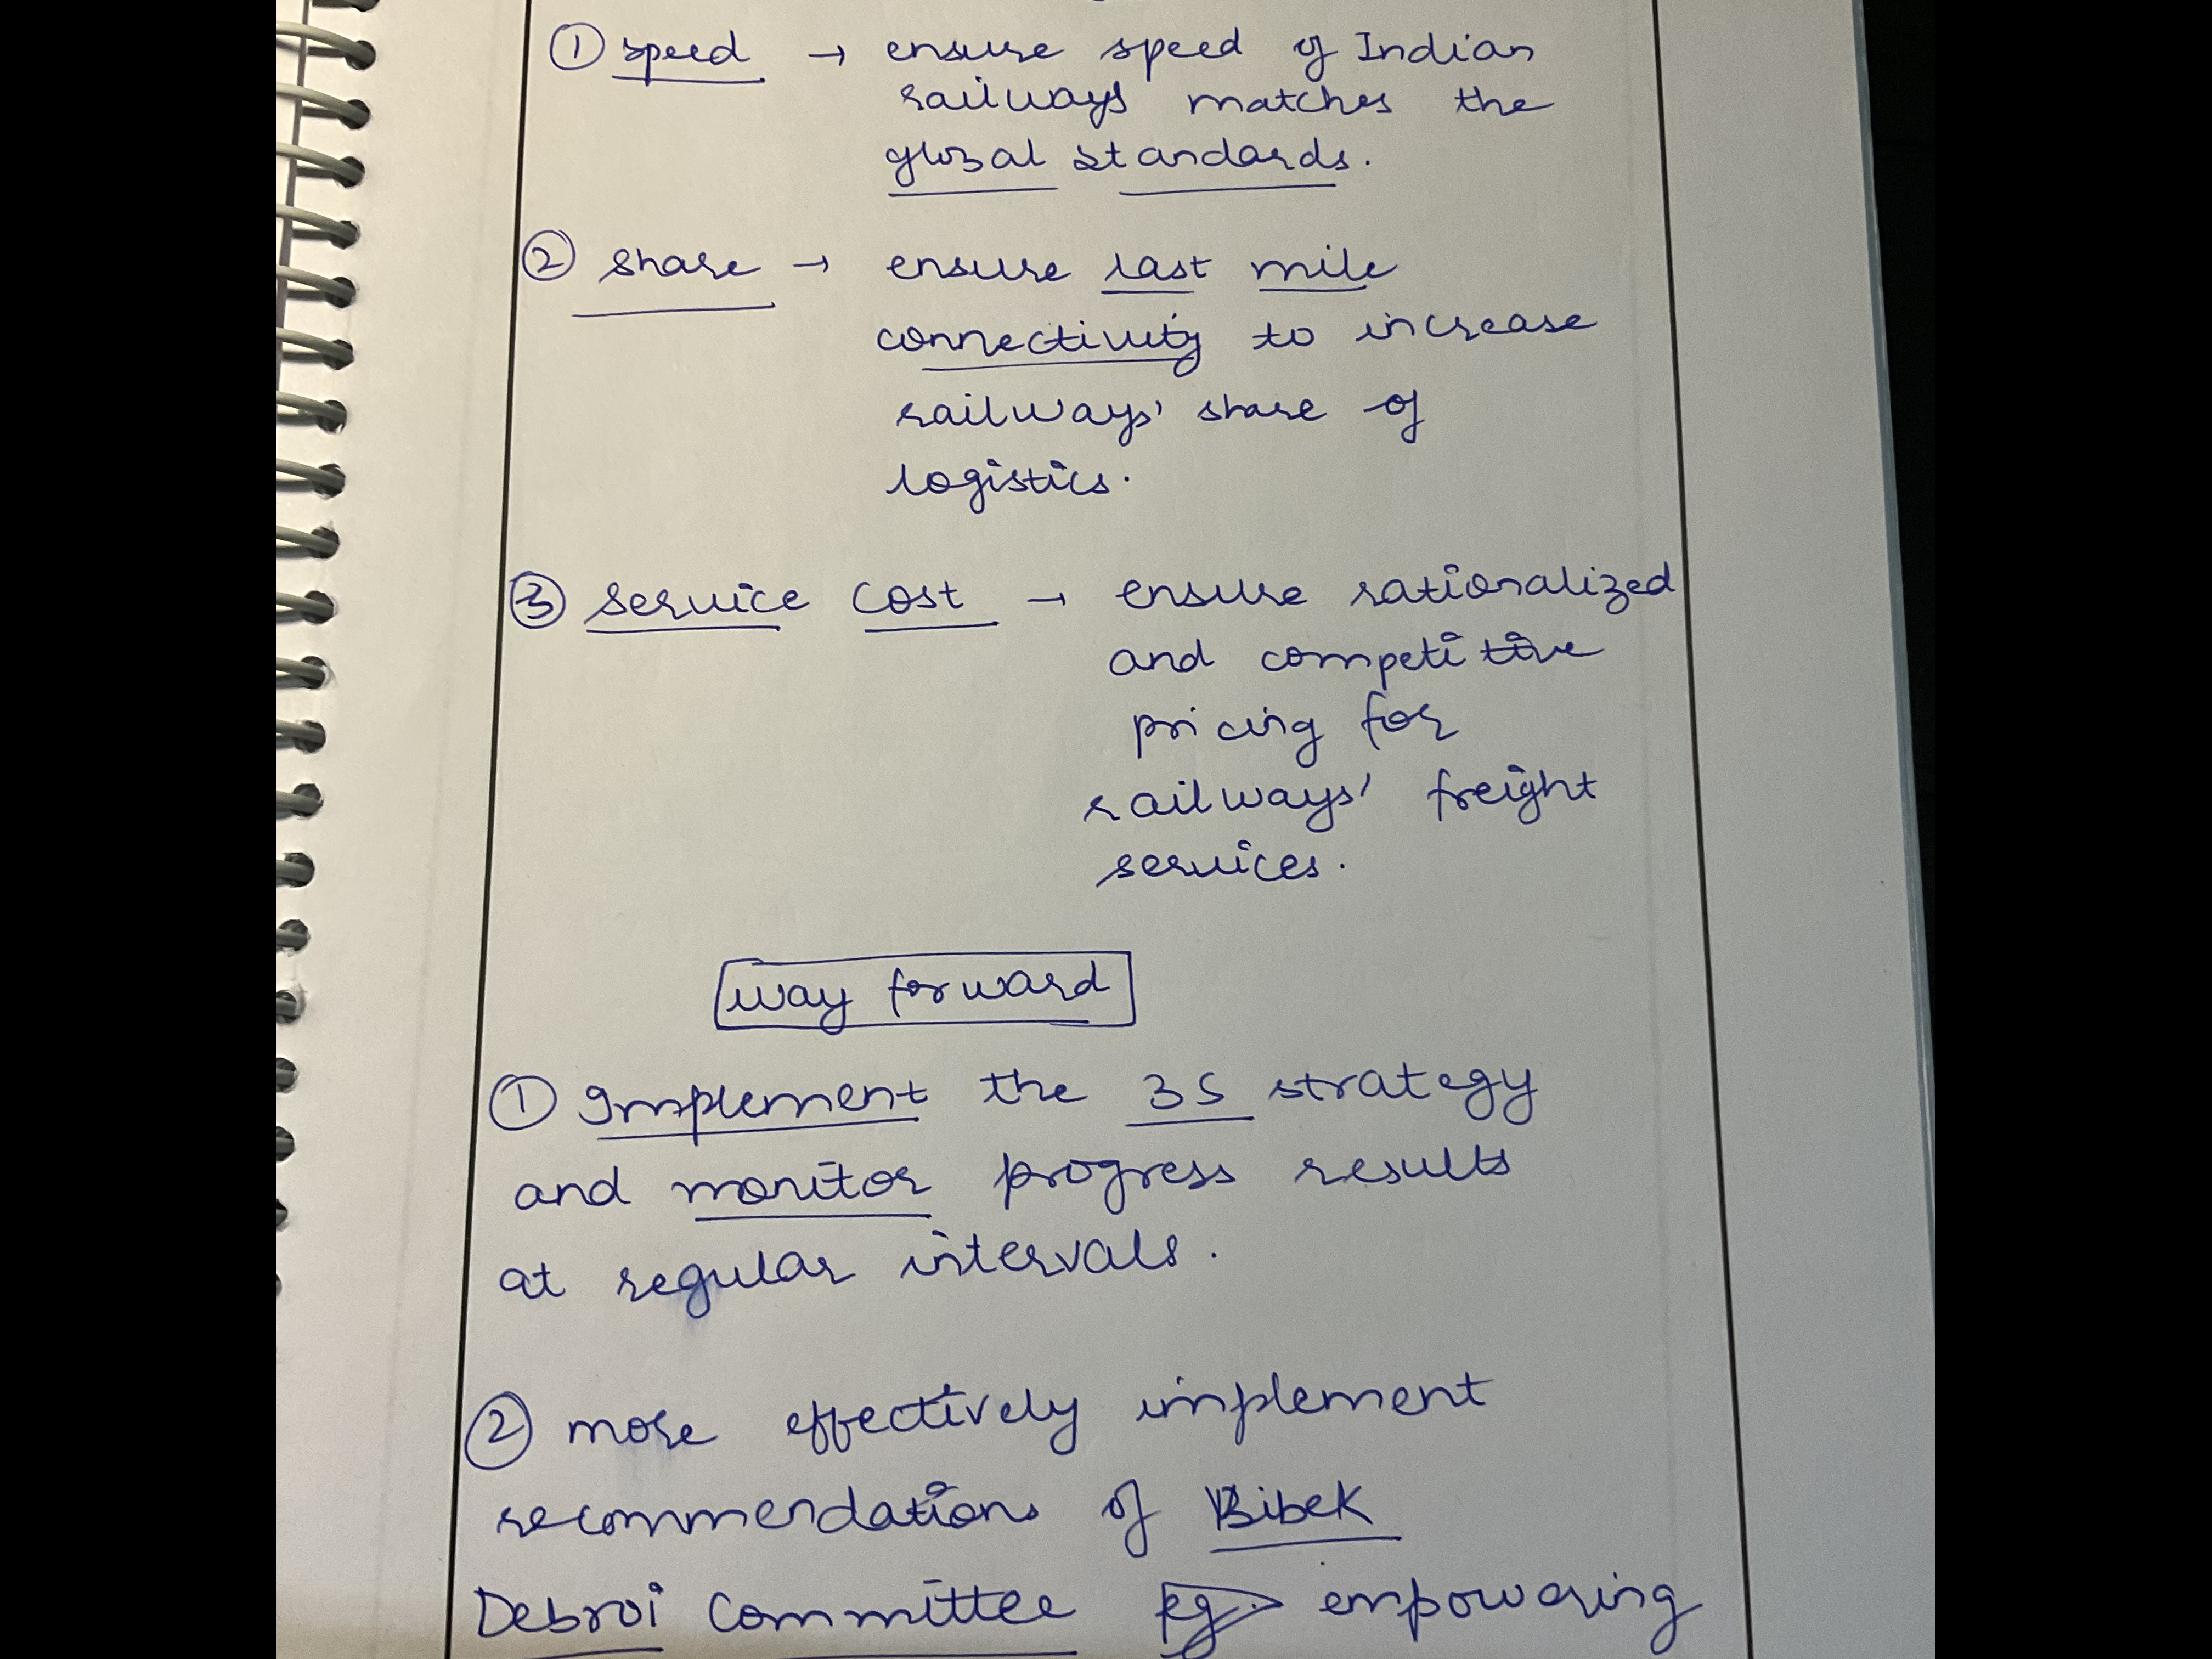 ① speed → ensure speed of Indian
railways matches the
global standards.
② share → ensure last mile
connectivity to increase
railways' share of
logistics.
③ service cost → ensure rationalized
and competitive
pricing for
railways' freight
services.
way forward
① Implement the 3S strategy
and monitor progress results
at regular intervals.
② more effectively implement
recommendations of Bibek
Debroi Committee eg. empowering